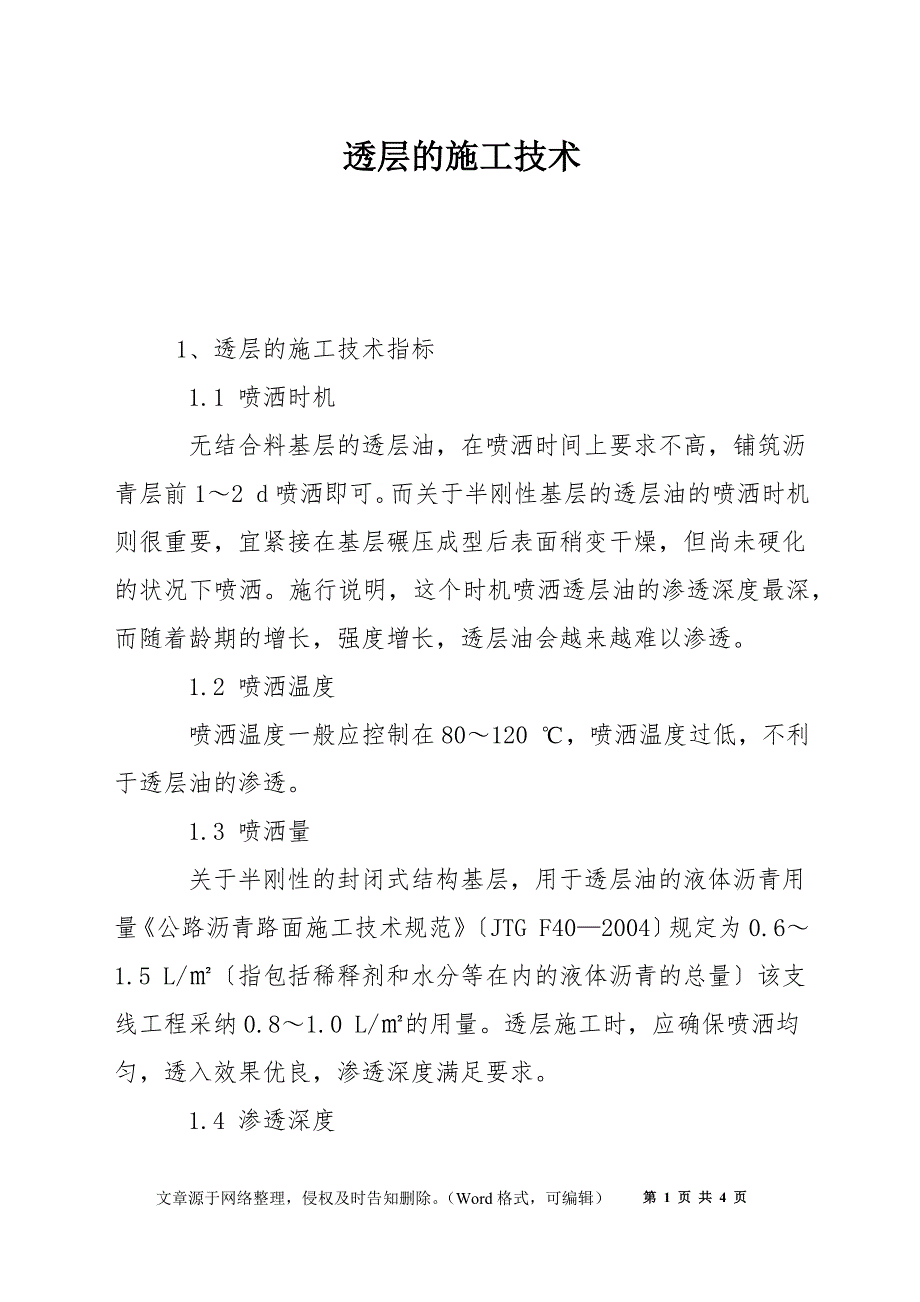 透层的施工技术
1、透层的施工技术指标
1.1 喷洒时机
无结合料基层的透层油，在喷洒时间上要求不高，铺筑沥
青层前1～2 d喷洒即可。而关于半刚性基层的透层油的喷洒时机
则很重要，宜紧接在基层碾压成型后表面稍变干燥，但尚未硬化
的状况下喷洒。施行说明，这个时机喷洒透层油的渗透深度最深，
而随着龄期的增长，强度增长，透层油会越来越难以渗透。
1.2 喷洒温度
喷洒温度一般应控制在80～120 ℃，喷洒温度过低，不利
于透层油的渗透。
1.3 喷洒量
关于半刚性的封闭式结构基层，用于透层油的液体沥青用
量《公路沥青路面施工技术规范》〔JTG F40—2004〕规定为0.6～
1.5 L/㎡〔指包括稀释剂和水分等在内的液体沥青的总量〕该支
线工程采纳0.8～1.0 L/㎡的用量。透层施工时，应确保喷洒均
匀，透入效果优良，渗透深度满足要求。
1.4 渗透深度
文章源于网络整理，侵权及时告知删除。（Word格式，可编辑） 第 1 页 共 4 页